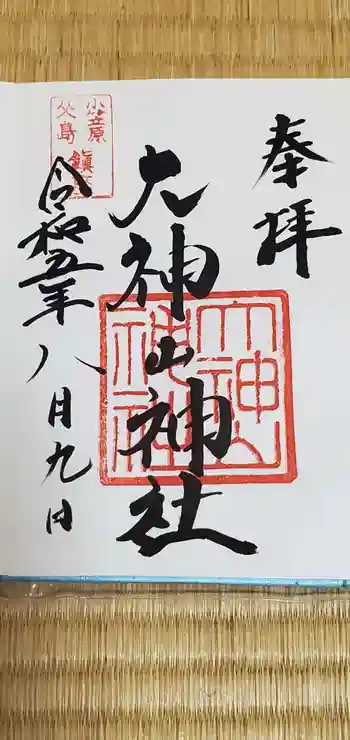 奉拝
大神山神社
令和五年八月九日
小笠原
父島
鎮
大神山
神社